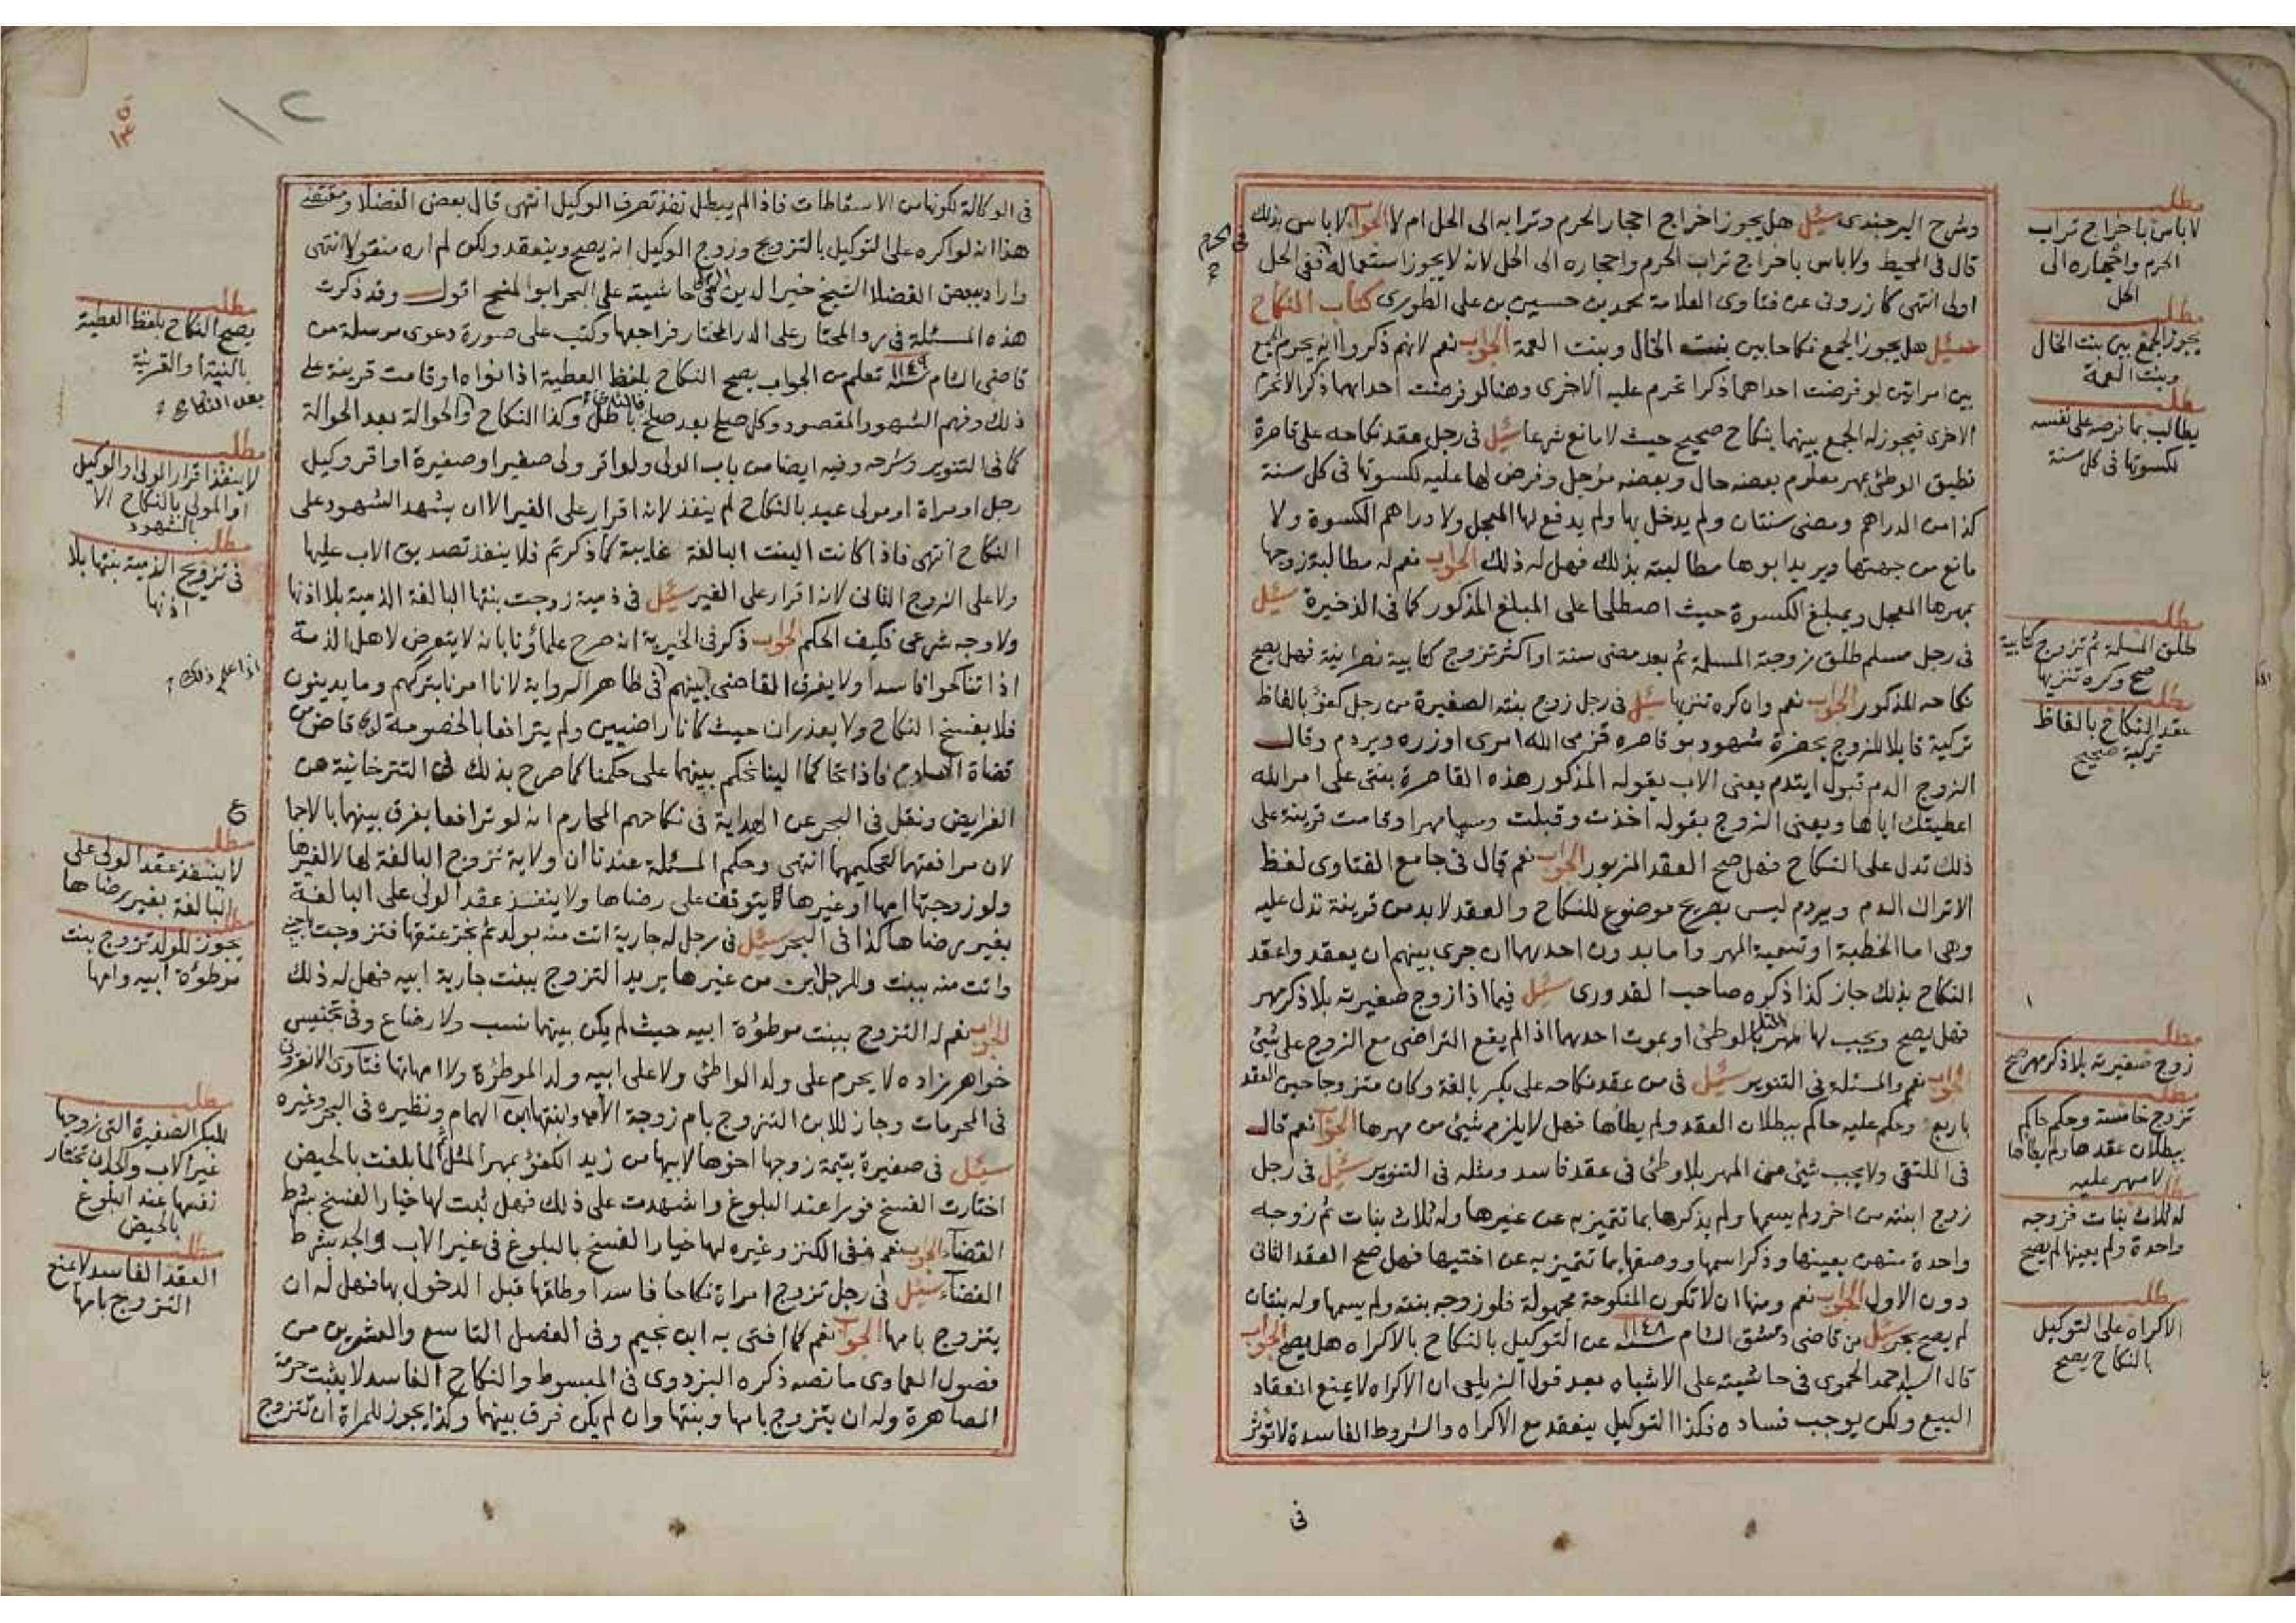 وشرح البرجندى سئل هل يجوز اخراج احجار الحرم وترابه الى الحل ام لا الجواب لا باس بذلك
قال فى المحيط ولا باس باخراج تراب الحرم واحجاره الى الحل لانه لا يجوز استعماله فى الحرم ففى الحل
اولى انتهى كازرونى عن فتاوى العلامة محمد بن حسين بن على الطورى كتاب النكاح
سئل هل يجوز الجمع نكاحا بين بنت الخال وبنت العمة الجواب نعم لانهم ذكروا انه يحرم الجمع
بين امراتين لو فرضت احداهما ذكرا تحرم عليه الاخرى وهنا لو فرضت احداهما ذكرا لا تحرم
الاخرى فيجوز له الجمع بينهما بنكاح صحيح حيث لا مانع شرعا سئل فى رجل عقد نكاحه على قاصرة
تطيق الوطئ بمهر معلوم بعضه حال وبعضه مؤجل وفرض لها عليه لكسوتها فى كل سنة
كذا من الدراهم ومضى سنتان ولم يدخل بها ولم يدفع لها المعجل ولا دراهم الكسوة ولا
مانع من جهتها ويريد ابوها مطالبته بذلك فهل له ذلك الجواب نعم له مطالبة زوجها
بمهرها المعجل وبمبلغ الكسوة حيث اصطلحا على المبلغ المذكور كما فى الذخيرة سئل
فى رجل مسلم طلق زوجته المسلمة ثم بعد مضى سنة او اكثر تزوج كتابية نصرانية فهل يصح
نكاحه المذكور الجواب نعم وان كره تنزيها سئل فى رجل زوج بنته الصغيرة من رجل كفؤ بالفاظ
تركية قايلا للزوج بحضرة شهود بو قاصره قزمى الله امرى اوزره ويردم وقال
الزوج الدم قبول ايتدم يعنى الاب بقوله المذكور هذه القاصرة بنتى على امر الله
اعطيتك اياها ويعنى الزوج بقوله اخذت وقبلت وسميا مهرا وقامت قرينة على
ذلك تدل على النكاح فهل صح العقد المزبور الجواب نعم قال فى جامع الفتاوى لفظ
الاتراك الدم ويردم ليس بصريح موضوع للنكاح والعقد لابد من قرينة تدل عليه
وهى اما الخطبة او تسمية المهر واما بدون احدهما ان جرى بينهم ان يعقد واعقد
النكاح بذلك جاز كذا ذكره صاحب القدورى سئل فيما اذا زوج صغيرته بلا ذكر مهر
فهل يصح ويجب لها مهر المثل بالوطئ او بموت احدهما اذا لم يقع التراضى مع الزوج على شيئ
الجواب نعم والمسئلة فى التنوير سئل فى من عقد نكاحه على بكر بالغة وكان متزوجا حين العقد
باربع وحكم عليه حاكم ببطلان العقد ولم يطاها فهل لا يلزم شيئ من مهرها الجواب نعم قال
فى الملتقى ولا يجب شيئ من المهر بلا وطئ فى عقد فاسد ومثله فى التنوير سئل فى رجل
زوج ابنته من اخر ولم يسمها ولم يذكرها بما تتميز به عن غيرها وله ثلاث بنات ثم زوجه
واحدة منهن بعينها وذكر اسمها ووصفها بما تتميز به عن اختيها فهل صح العقد الثانى
دون الاول الجواب نعم ومنها ان لا تكون المنكوحة مجهولة فلو زوجه بنته ولم يسمها وله بنتان
لم يصح بحر سئل من قاضى دمشق الشام سنة ١١٤٨ عن التوكيل بالنكاح بالاكراه هل يصح الجواب
قال السيد احمد الحموى فى حاشيته على الاشباه بعد قول الزيلعى ان الاكراه لا يمنع انعقاد
البيع ولكن يوجب فساده فكذا التوكيل ينعقد مع الاكراه والشروط الفاسدة لا تؤثر
فى
مطلب
لا باس باخراج تراب
الحرم واحجاره الى
الحل
مطلب
يجوز الجمع بين بنت الخال
وبنت العمة
مطلب
يطالب بما فرضه على نفسه
لكسوتها فى كل سنة
مطلب
طلق المسلمة ثم تزوج كتابية
صح وكره تنزيها
مطلب
عقد النكاح بالفاظ
تركية صحيح
مطلب
زوج صغيرته بلا ذكر مهر صح
مطلب
تزوج خامسة وحكم حاكم
ببطلان عقدها ولم يطاها
لا مهر عليه
مطلب
له ثلاث بنات فزوجه
واحدة ولم يعينها لم يصح
مطلب
الاكراه على التوكيل
بالنكاح يصح
١٢
فى الوكالة لكونها من الاسقاطات فاذا لم يبطل نفذ تصرف الوكيل انتهى قال بعض الفضلا ومقتضى
هذا انه لو اكره على التوكيل بالتزويج وزوج الوكيل انه يصح وينعقد ولكن لم اره منقولا انتهى
واراد ببعض الفضلا الشيخ خير الدين الرملى فى حاشيته على البحر ابو المنح اقول وقد ذكرت
هذه المسئلة فى رد المحتار على الدر المختار فراجعها وكتب على صورة دعوى مرسلة من
قاضى الشام سنة ١١٤٩ تعلم من الجواب يصح النكاح بلفظ العطية اذا نواه او قامت قرينة على
ذلك وفهم الشهود المقصود وكل صلح بعد صلح فالثانى باطل وكذا النكاح والحوالة بعد الحوالة
كما فى التنوير وشرحه وفيه ايضا من باب الولى ولو اقر ولى صغير او صغيرة او اقر وكيل
رجل او مراة او مولى عبد بالنكاح لم ينفذ لانه اقرار على الغير الا ان يشهد الشهود على
النكاح انتهى فاذا كانت البنت البالغة غايبة كما ذكرتم فلا ينفذ تصديق الاب عليها
ولا على الزوج الثانى لانه اقرار على الغير سئل فى ذمية زوجت بنتها البالغة الذمية بلا اذنها
ولا وجه شرعى فكيف الحكم الجواب ذكر فى الخيرية انه صرح علماؤنا بانه لا يتعرض لاهل الذمة
اذا تناكحوا فاسدا ولا يفرق القاضى بينهم فى ظاهر الرواية لانا امرنا بتركهم وما يدينون
فلا يفسخ النكاح ولا يعذران حيث كانا راضيين ولم يترافعا بالخصومة لدى قاض من
قضاة الاسلام فاذا تحاكما الينا نحكم بينهما على حكمنا كما صرح بذلك فى التترخانية من
الفرايض ونقل فى البحر عن الهداية فى نكاحهم المحارم انه لو ترافعا يفرق بينهما بالاجما
لان مرافعتهما كتحكيمهما انتهى وحكم المسئلة عندنا ان ولاية تزوج البالغة لها لا لغيرها
ولو زوجتها امها او غيرها يتوقف على رضاها ولا ينفذ عقد الولى على البالغة
بغير رضاها كذا فى البحر سئل فى رجل له جارية اتت منه بولد ثم نجز عتقها فتزوجت باجنبى
واتت منه ببنت وللرجل ابن من غيرها يريد التزوج ببنت جارية ابيه فهل له ذلك
الجواب نعم له التزوج ببنت موطؤة ابيه حيث لم يكن بينهما نسب ولا رضاع وفى تجنيس
خواهر زاده لا يحرم على ولد الواطئ ولا على ابيه ولد الموطؤة ولا امهاتها فتاوى الانقروى
فى المحرمات وجاز للابن التزوج بام زوجة الاب وابنتها ابن الهمام ونظيره فى البحر وغيره
سئل فى صغيرة يتيمة زوجها اخوها لابيها من زيد الكفؤ بمهر المثل ثم لما بلغت بالحيض
اختارت الفسخ فورا عند البلوغ واشهدت على ذلك فهل ثبت لها خيار الفسخ بشرط
القضاء الجواب نعم ففى الكنز وغيره لها خيار الفسخ بالبلوغ فى غير الاب والجد بشرط
القضاء سئل فى رجل تزوج امراة نكاحا فاسدا وطلقها قبل الدخول بها فهل له ان
يتزوج بامها الجواب نعم كما افتى به ابن نجيم وفى الفصل التاسع والعشرين من
فصول العمادى ما نصه ذكره البزدوى فى المبسوط والنكاح الفاسد لا يثبت حرمة
المصاهرة وله ان يتزوج بامها وبنتها وان لم يكن فرق بينهما وكذا يجوز للمراة ان تتزوج
مطلب
يصح النكاح بلفظ العطية
بالنية او القرينة
بعد النكاح
مطلب
لا ينفذ اقرار الولى والوكيل
او المولى بالنكاح الا
بالشهود
مطلب
فى تزويج الذمية بنتها بلا
اذنها
اذا علم ذلك
مطلب
لا ينفذ عقد الولى على
البالغة بغير رضاها
مطلب
يجوز للولد تزوج بنت
موطؤة ابيه وامها
مطلب
للبكر الصغيرة التى زوجها
غير الاب والجد ان تختار
نفسها عند البلوغ
بالحيض
مطلب
العقد الفاسد لا يمنع
التزوج بامها